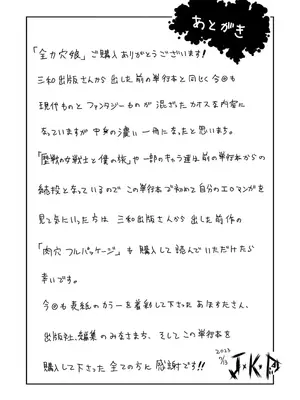 あとがき
「全力穴娘」ご購入ありがとうございます!
三和出版さんから出した前の単行本と同じく今回も
現代ものとファンタジーものが混ざったカオスな内容に
なっていますが中身の濃い一冊になったと思います。
「歴戦の女戦士と僕の旅」や一部のキャラ達は前の単行本からの
続投となっているのでこの単行本で初めて自分のエロマンガを
見て気にいった方は 三和出版さんから出した前作の
「肉穴フルパッケージ」も購入して読んでいただけたら
幸いです。
今回も表紙のカラーを着彩して下さったあまぎたさん、
出版社、編集のみなさまち、そしてこの単行本を
購入して下さった全ての方に感謝です!!
2023
7/3
J×K×P